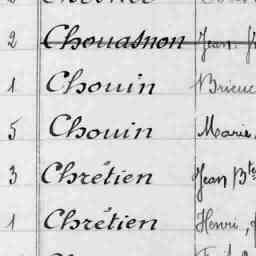 2 Chouasnon Jean
1 Chouin Brieuc
5 Chouin Marie
3 Chrétien Jean Bte
1 Chrétien Henri,